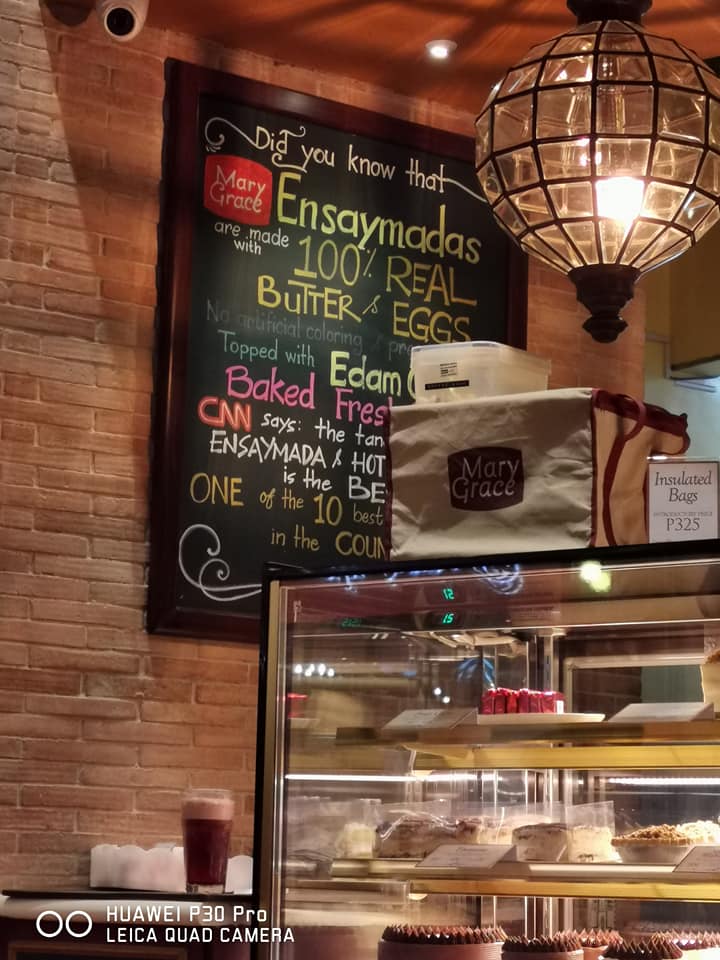 Did you know that
Mary
Grace
Ensaymadas
are made
with
100% REAL
BUTTER & EGGS
No artificial coloring &
Topped with Edam
Baked Fres
CNN says: the tan
ENSAYMADA & HOT
is the BE
ONE of the 10 best
in the COUN
Mary
Grace
Insulated
Bags
INTRODUCTORY PRICE
P325
12
15
HUAWEI P30 Pro
LEICA QUAD CAMERA